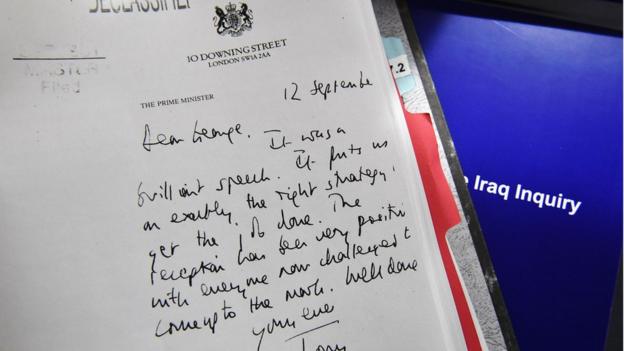 DECLASSIFI
MASTER
Filed
10 DOWNING STREET
LONDON SW1A 2AA
THE PRIME MINISTER
12 September
7.2
Dear George. It was a
brilliant speech. It puts us
on exactly the right strategy to
get the job done. The
reception has been very positive
with everyone now challenged to
come up to the mark. Well done
yours ever
Tony
Iraq Inquiry